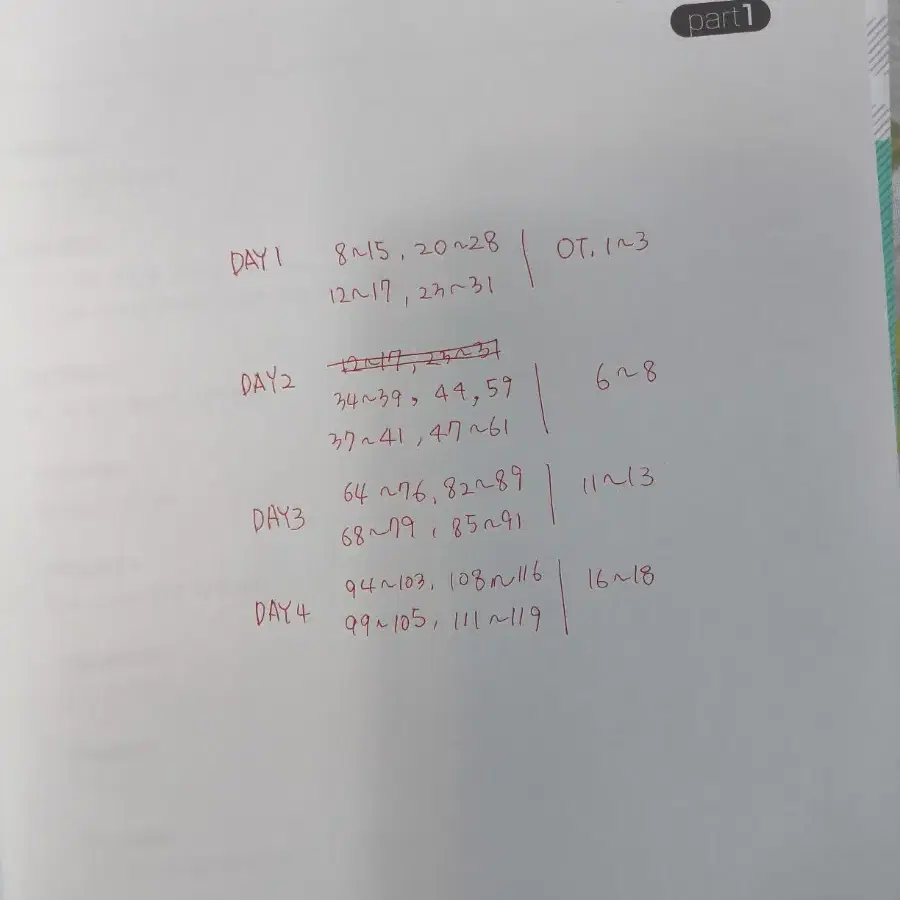 part1
DAY1 8~15, 20~28 | OT, 1~3
12~17, 23~31
12~17, 23~31
DAY2 34~39, 44, 59 | 6~8
37~41, 47~61
64~76, 82~89 | 11~13
DAY3 68~79, 85~91
94~103, 108~116 | 16~18
DAY4 99~105, 111~119